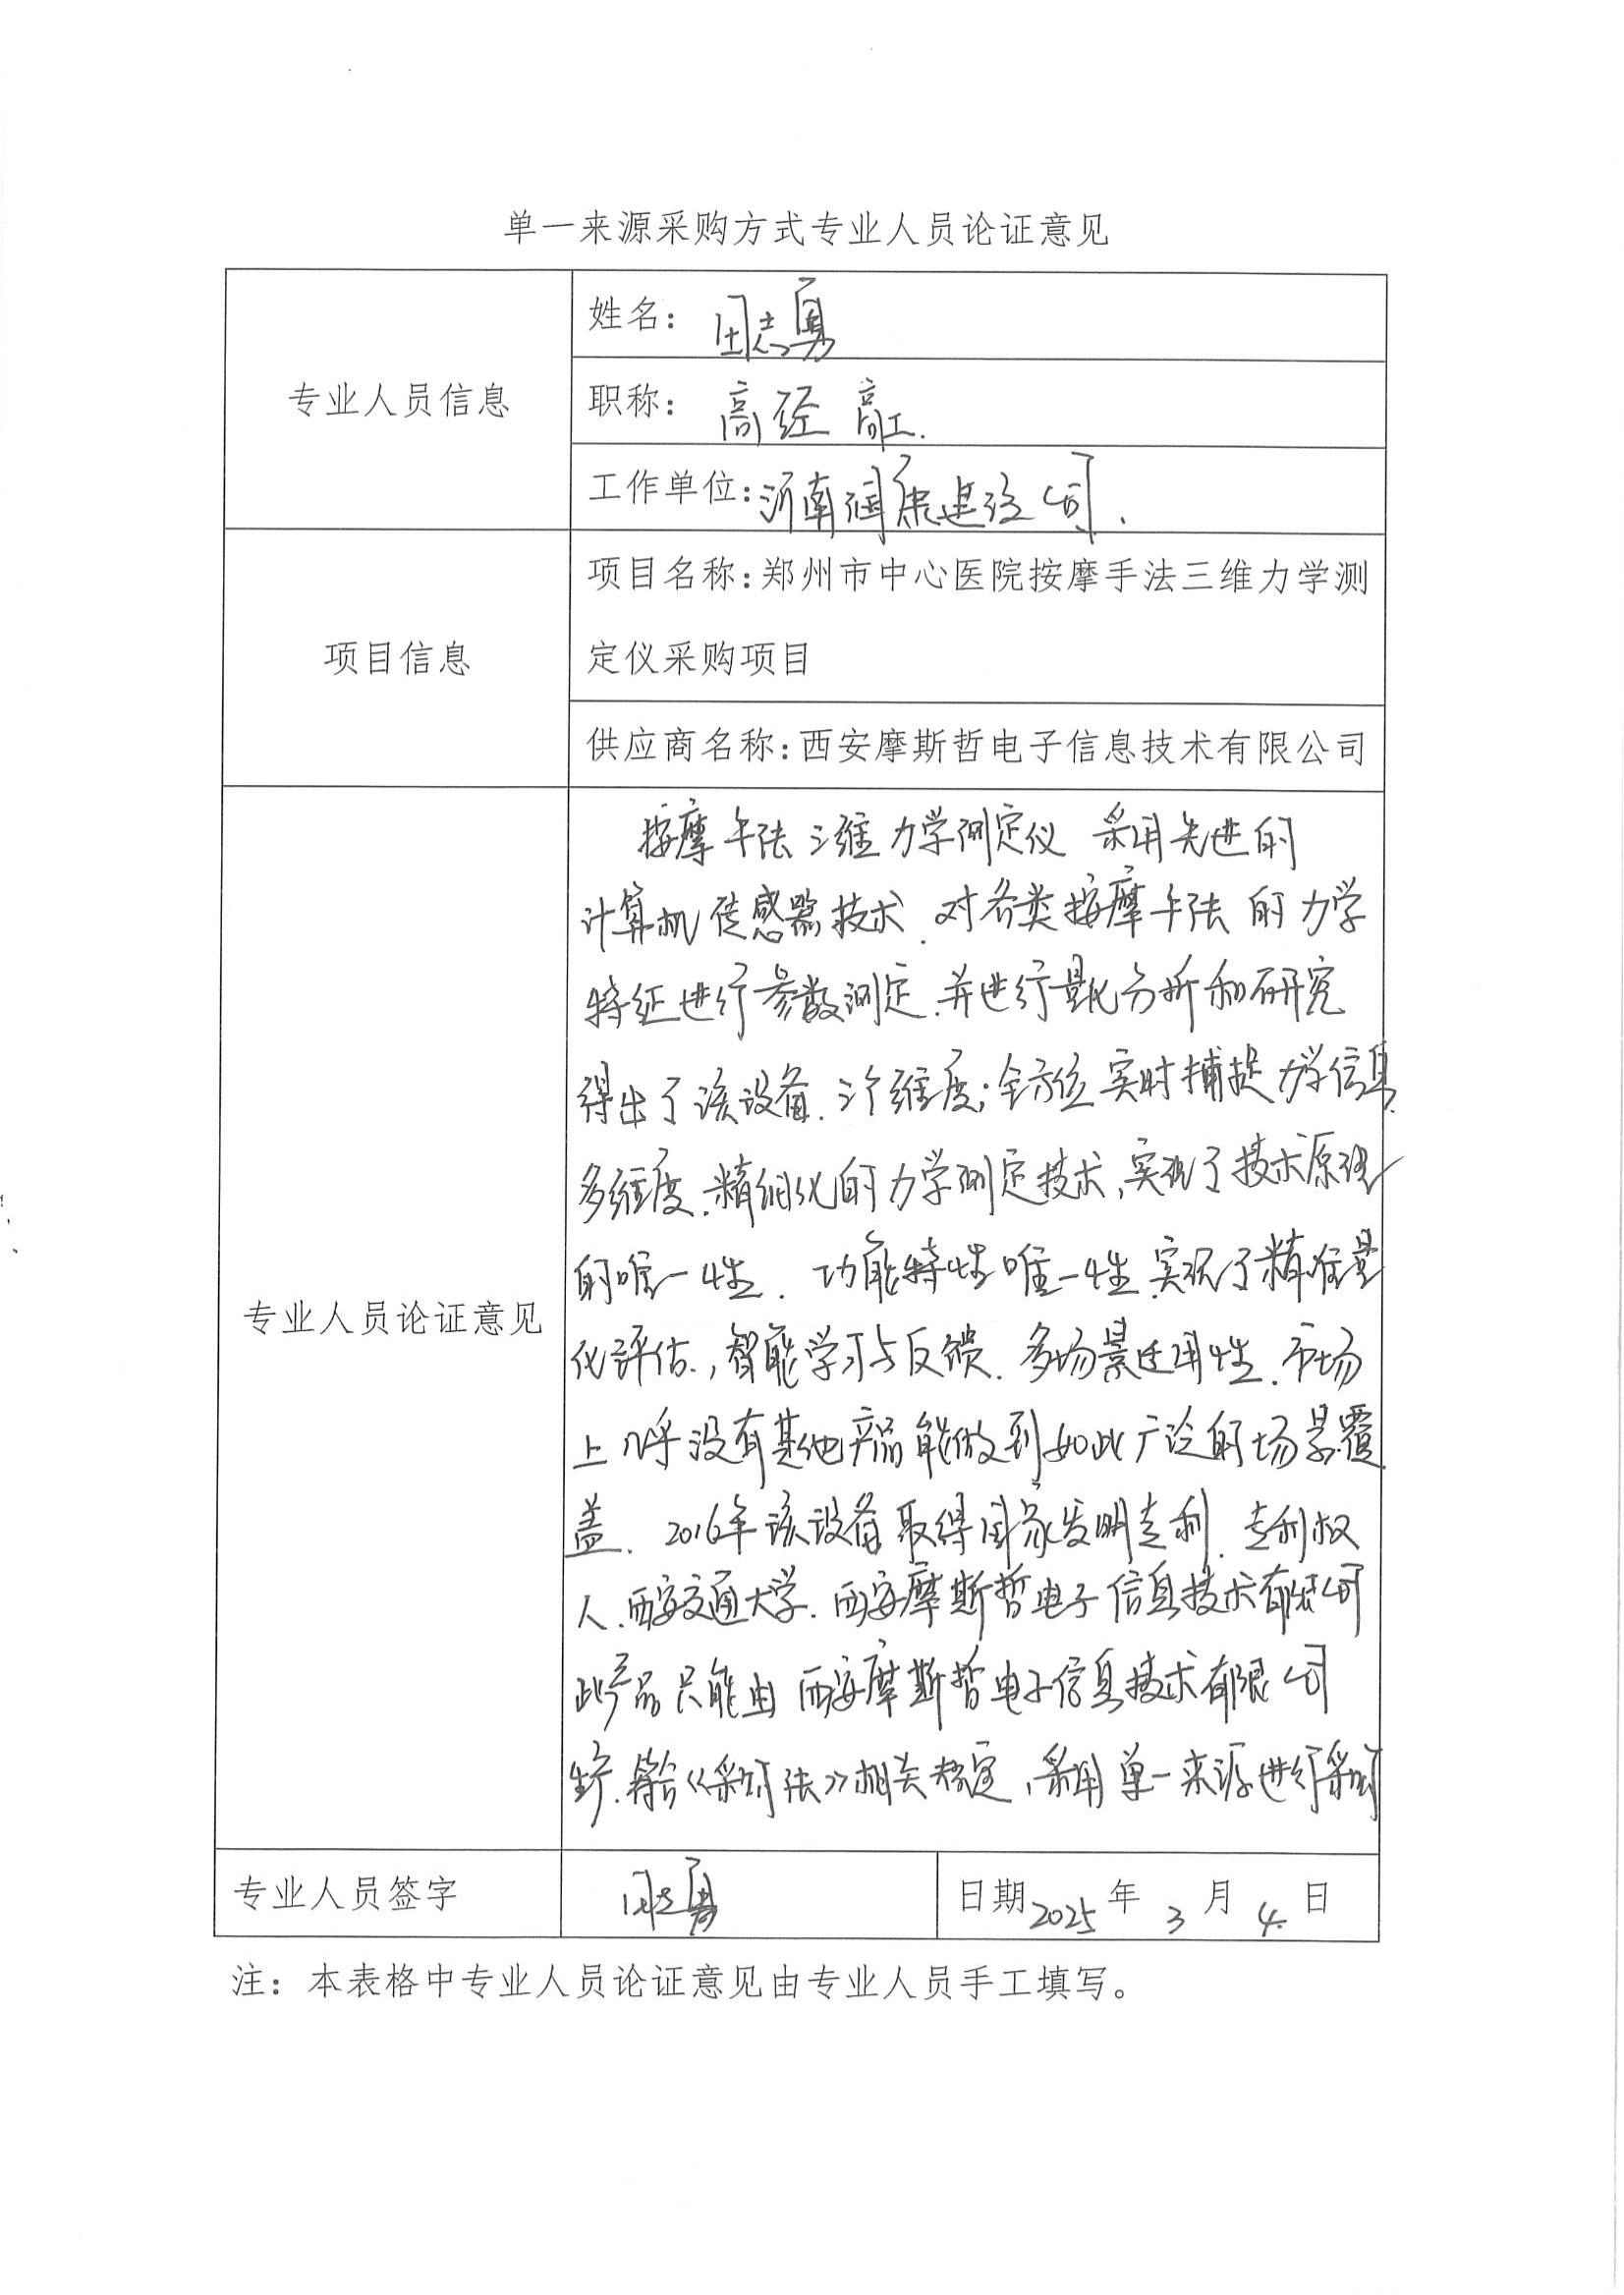 单一来源采购方式专业人员论证意见
专业人员信息
姓名：田志勇
职称：高经 高工.
工作单位：河南润康建设公司.
项目信息
项目名称：郑州市中心医院按摩手法三维力学测
定仪采购项目
供应商名称：西安摩斯哲电子信息技术有限公司
专业人员论证意见
按摩手法三维力学测定仪 采用先进的
计算机传感器技术.对各类按摩手法的力学
特征进行参数测定.并进行量化分析和研究
得出了该设备.三个维度；全方位实时捕捉力学信息.
多维度.精细化的力学测定技术，实现了技术原理
的唯一性. 功能特性唯一性.实现了精准量
化评估.，智能学习与反馈.多场景适用性.市场
上几乎没有其他产品能做到如此广泛的场景覆
盖. 2016年该设备取得国家发明专利.专利权
人.西安交通大学.西安摩斯哲电子信息技术有限公司
此产品只能由西安摩斯哲电子信息技术有限公司
生产.符合《采购法》相关规定，采用单一来源进行采购
专业人员签字
田志勇
日期2025年3月4.日
注：本表格中专业人员论证意见由专业人员手工填写。